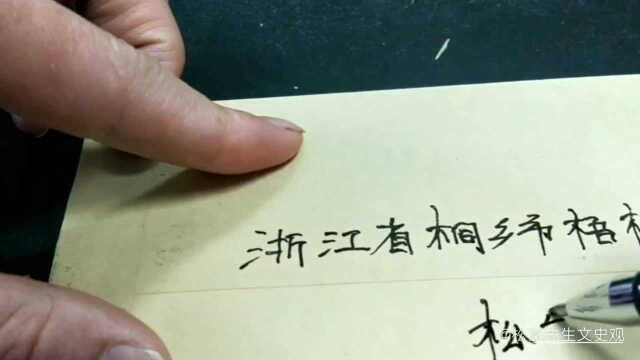 浙江省桐乡市梧
松
生文史观